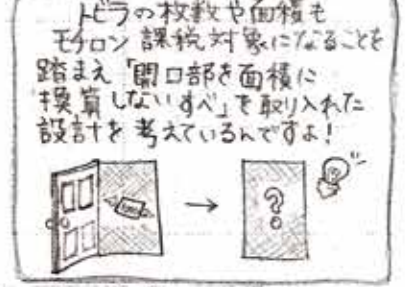 トビラの枚数や面積も
モチロン課税対象になることを
踏まえ「開口部を面積に
換算しないすべ」を取り入れた
設計を考えているんですよ!
?